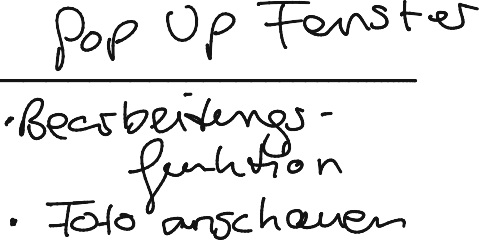 Pop Up Fenster
· Bearbeitungs-
funktion
· Foto anschauen